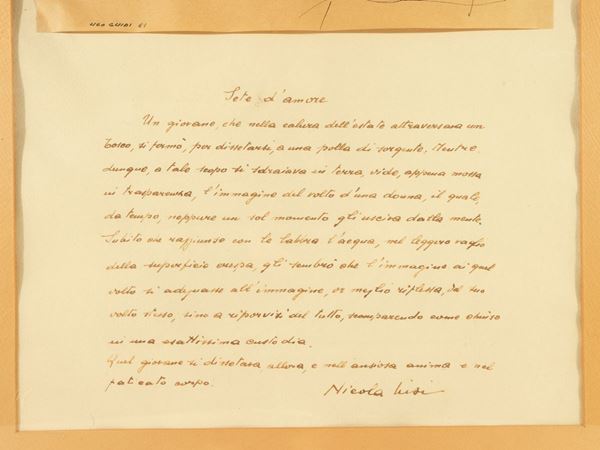 UGO GUIDI 81
Sete d'amore
Un giovane, che nella calura dell'estate attraversava un
bosco, si fermò, per dissetarsi, a una polla di sorgente. Mentre
dunque, a tale scopo si sdraiava in terra, vide, appena mossa
in trasparenza, l'immagine del volto d'una donna, il quale,
da tempo, neppure un sol momento gli usciva dalla mente.
Subito che raggiunse con le labbra l'acqua, nel leggero
della superficie crespa, gli sembrò che l'immagine di quel
volto si adeguasse all'immagine, or meglio riflessa, del suo
volto stesso, sino a riporvisi del tutto, scomparendo come chiuso
in una esattissima custodia.
Quel giovane si dissetava allora, e nell'ansiosa anima e nel
faticato corpo.
Nicola Lisi